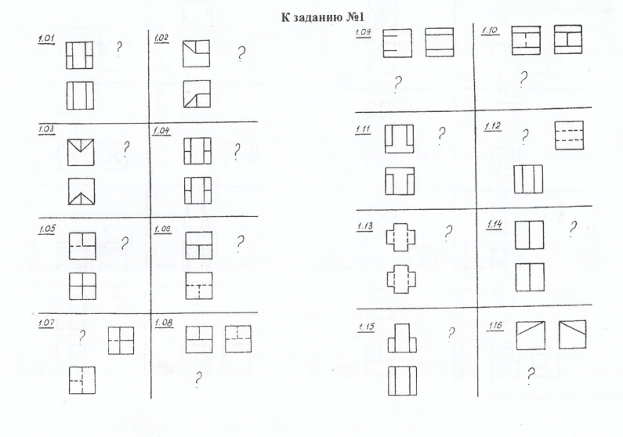 К заданию №1
1.01 ? 1.02 ?
1.03 ? 1.04 ?
1.05 ? 1.06 ?
1.07 ? 1.08 ?
1.09 ? 1.10 ?
1.11 ? 1.12 ?
1.13 ? 1.14 ?
1.15 ? 1.16 ?